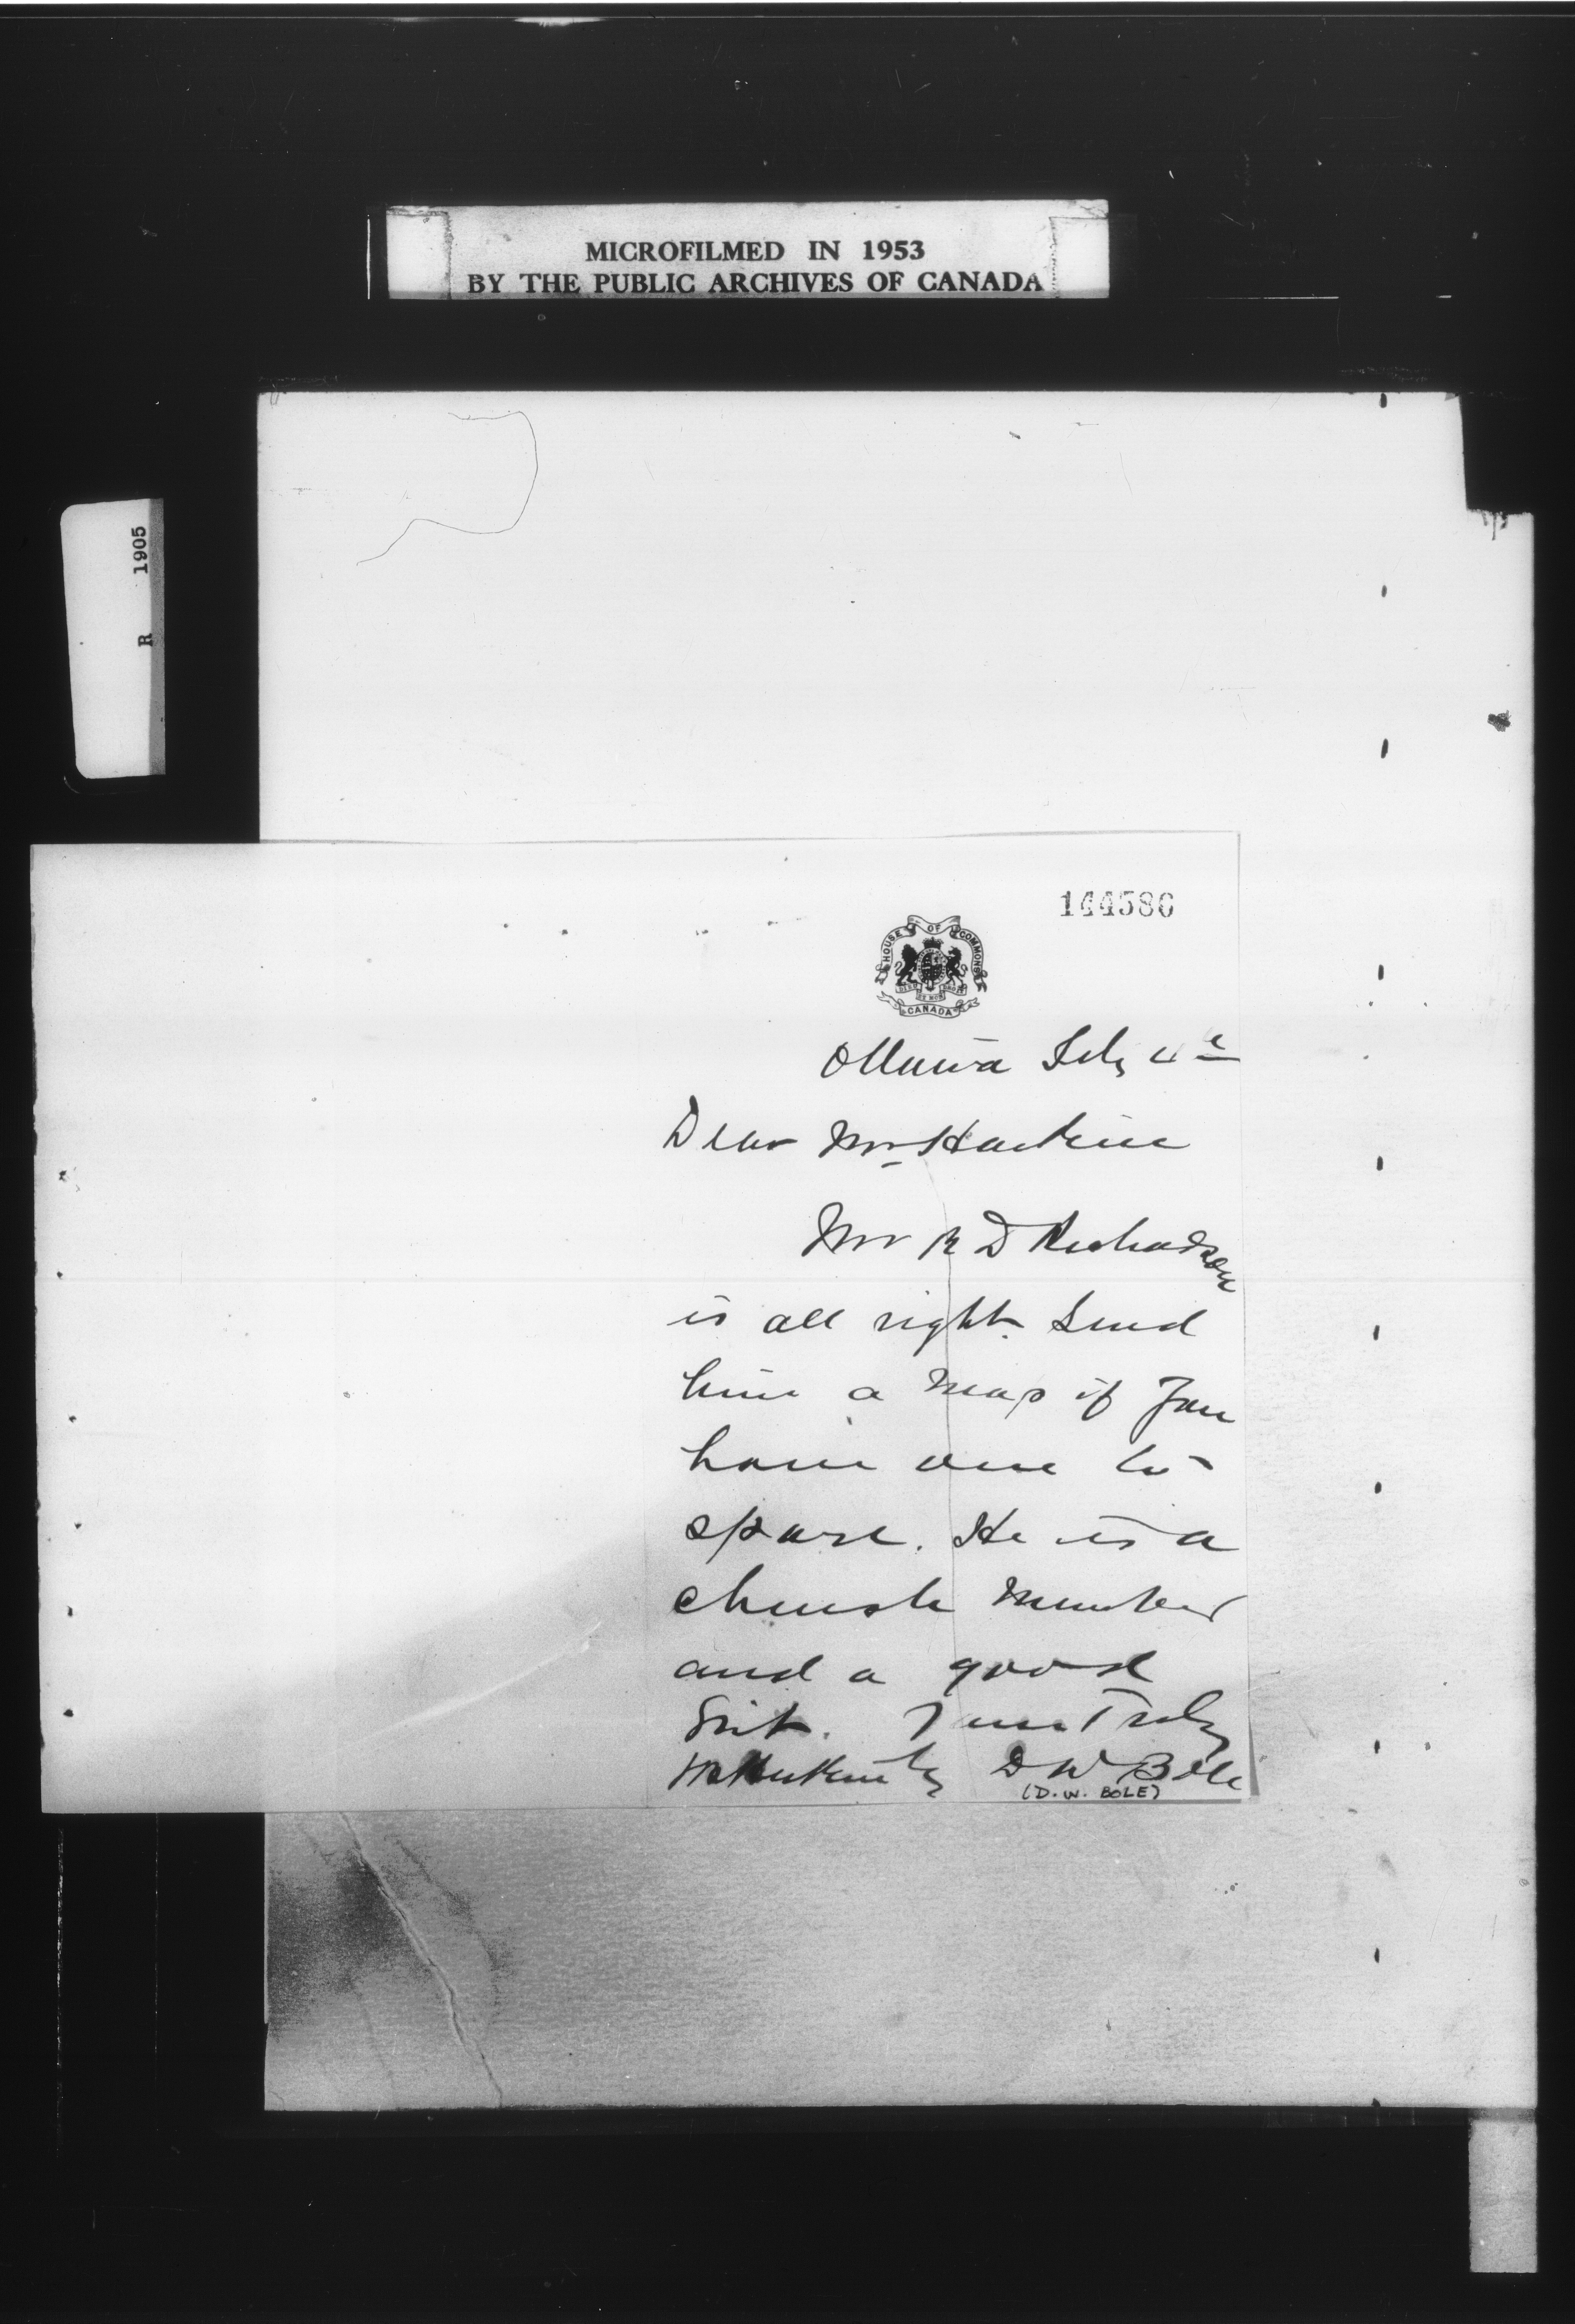 MICROFILMED IN 1953
BY THE PUBLIC ARCHIVES OF CANADA
R 1905
144586
HOUSE OF COMMONS
CANADA
Ottawa July 4
Dear Mr Harkin
Mr R D Richardson
is all right. Send
him a map if you
have one to
spare. He is a
church member
and a good
Grit. Yours Truly
D W Bole
(D. W. BOLE)